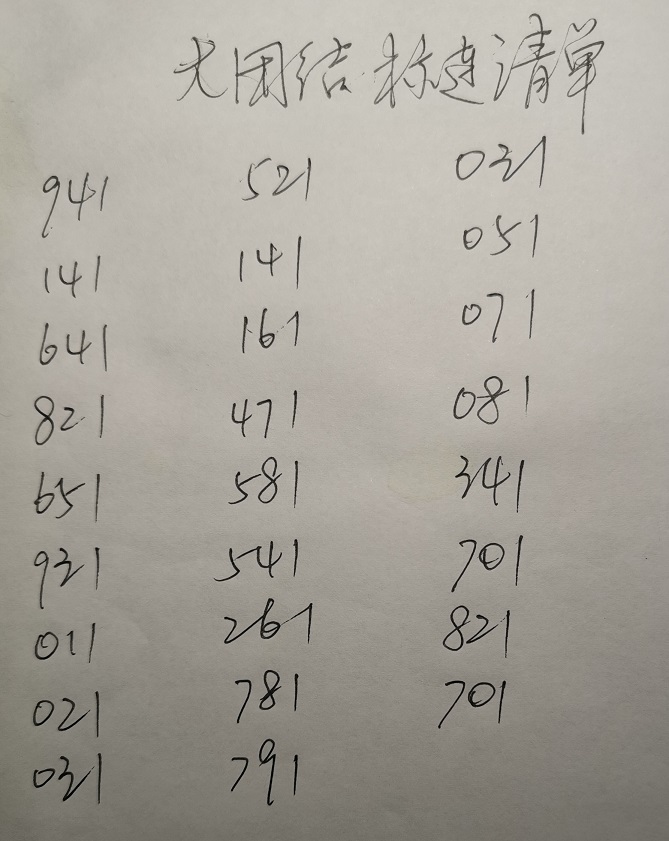 大团结标连清单
941 521 031
141 141 051
641 161 071
821 471 081
651 581 341
931 541 701
011 261 821
021 781 701
031 791